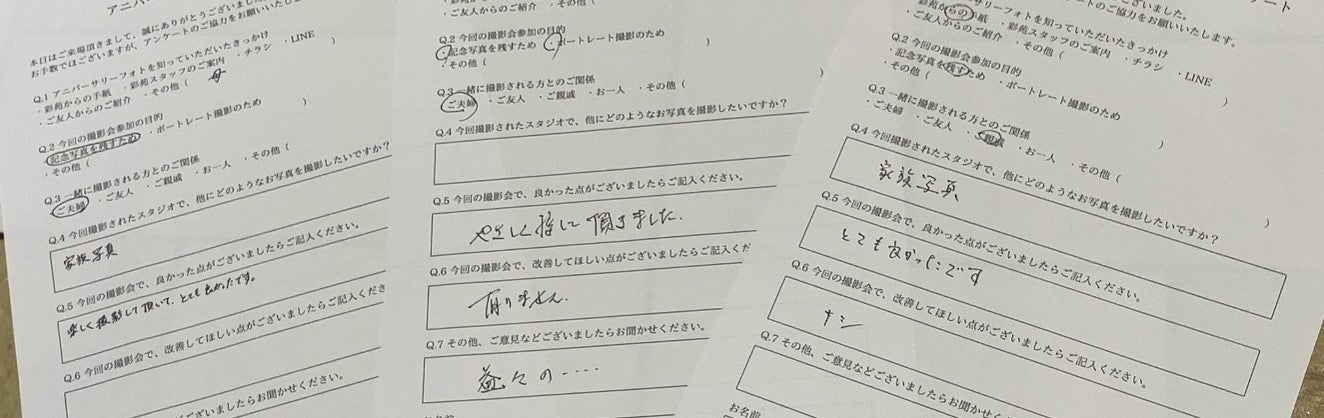 アニバ
本日はご来場頂きまして、誠にありがとうございました
お手数ではございますが、アンケートのご協力をお願いいたしま
Q.1 アニバーサリーフォトを知っていただいたきっかけ
・彩苑からの手紙 ・彩苑スタッフのご案内 ・チラシ ・LINE
・ご友人からのご紹介 ・その他( 母
Q.2 今回の撮影会参加の目的
・記念写真を残すため ・ポートレート撮影のため
・その他( )
Q.3 一緒に撮影される方とのご関係
・ご夫婦 ・ご友人 ・ご親戚 ・お一人 ・その他(
Q.4 今回撮影されたスタジオで、他にどのようなお写真を撮影したいですか?
家族写真
Q.5 今回の撮影会で、良かった点がございましたらご記入ください。
楽しく撮影して頂いて、とても良かったです。
Q.6 今回の撮影会で、改善してほしい点がございましたらご記入くださ
ございましたらお聞かせください。
・ご友人からのご紹介 ・その他(
Q.2 今回の撮影会参加の目的
・記念写真を残すため ・ポートレート撮影のため
・その他( )
Q.3 一緒に撮影される方とのご関係
・ご夫婦 ・ご友人 ・ご親戚 ・お一人 ・その他( )
Q.4 今回撮影されたスタジオで、他にどのようなお写真を撮影したいですか?
Q.5 今回の撮影会で、良かった点がございましたらご記入ください。
やさしく接して頂きました。
Q.6 今回の撮影会で、改善してほしい点がございましたらご記入くだ
有りません。
Q.7 その他、ご意見などございましたらお聞かせください。
益々の‥‥
お名前
ート
ございました。
アンケートのご協力をお願いいたします。
アニバーサリーフォトを知っていただいたきっかけ
彩苑からの手紙 ・彩苑スタッフのご案内 ・チラシ ・LINE
・ご友人からのご紹介 ・その他( )
Q.2 今回の撮影会参加の目的
・記念写真を残すため ・ポートレート撮影のため
・その他( )
Q.3 一緒に撮影される方とのご関係
・ご夫婦 ・ご友人 ・ご親戚 ・お一人 ・その他( )
Q.4 今回撮影されたスタジオで、他にどのようなお写真を撮影したいですか?
家族写真
Q.5 今回の撮影会で、良かった点がございましたらご記入ください。
とても良かったです
Q.6 今回の撮影会で、改善してほしい点がございましたらご記入ください。
ナシ
Q.7 その他、ご意見などございましたらお聞かせください。
お名前